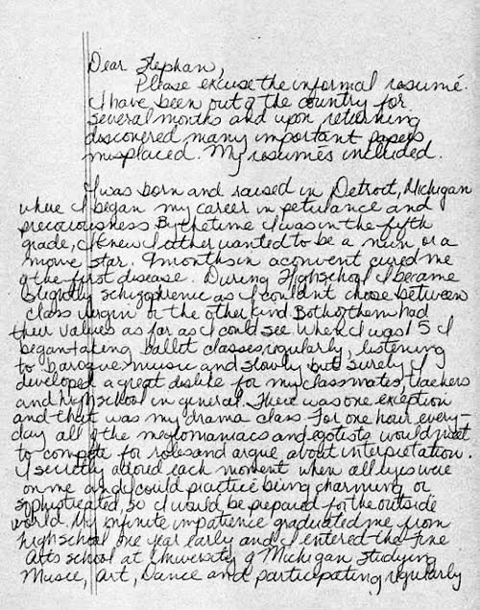 Dear Stephan,
Please excuse the informal resumé.
I have been out of the country for
several months and upon returning
discovered many important papers
misplaced. My resumés included.
I was born and raised in Detroit, Michigan
where I began my career in petulance and
preciousness. By the time I was in the fifth
grade, I knew I either wanted to be a nun or a
movie star. 9 months in a convent cured me
of the first disease. During High school I became
slightly schizophrenic as I couldn't choose between
class virgin or the other kind. Both of them had
their values as far as I could see. When I was 15 I
began taking ballet classes regularly, listening
to baroque music and slowly but surely I
developed a great dislike for my classmates, teachers
and high school in general. There was one exception
and that was my drama class. For one hour every-
day all of the meglomaniacs and egotists would meet
to compete for roles and argue about interpretation.
I secretly adored each moment when all eyes were
on me and I could practice being charming or
sophisticated, so I would be prepared for the outside
world. My infinite impatience graduated me from
high school one year early and I entered the Fine
Arts school at University of Michigan studying
Music, Art, Dance and participating regularly